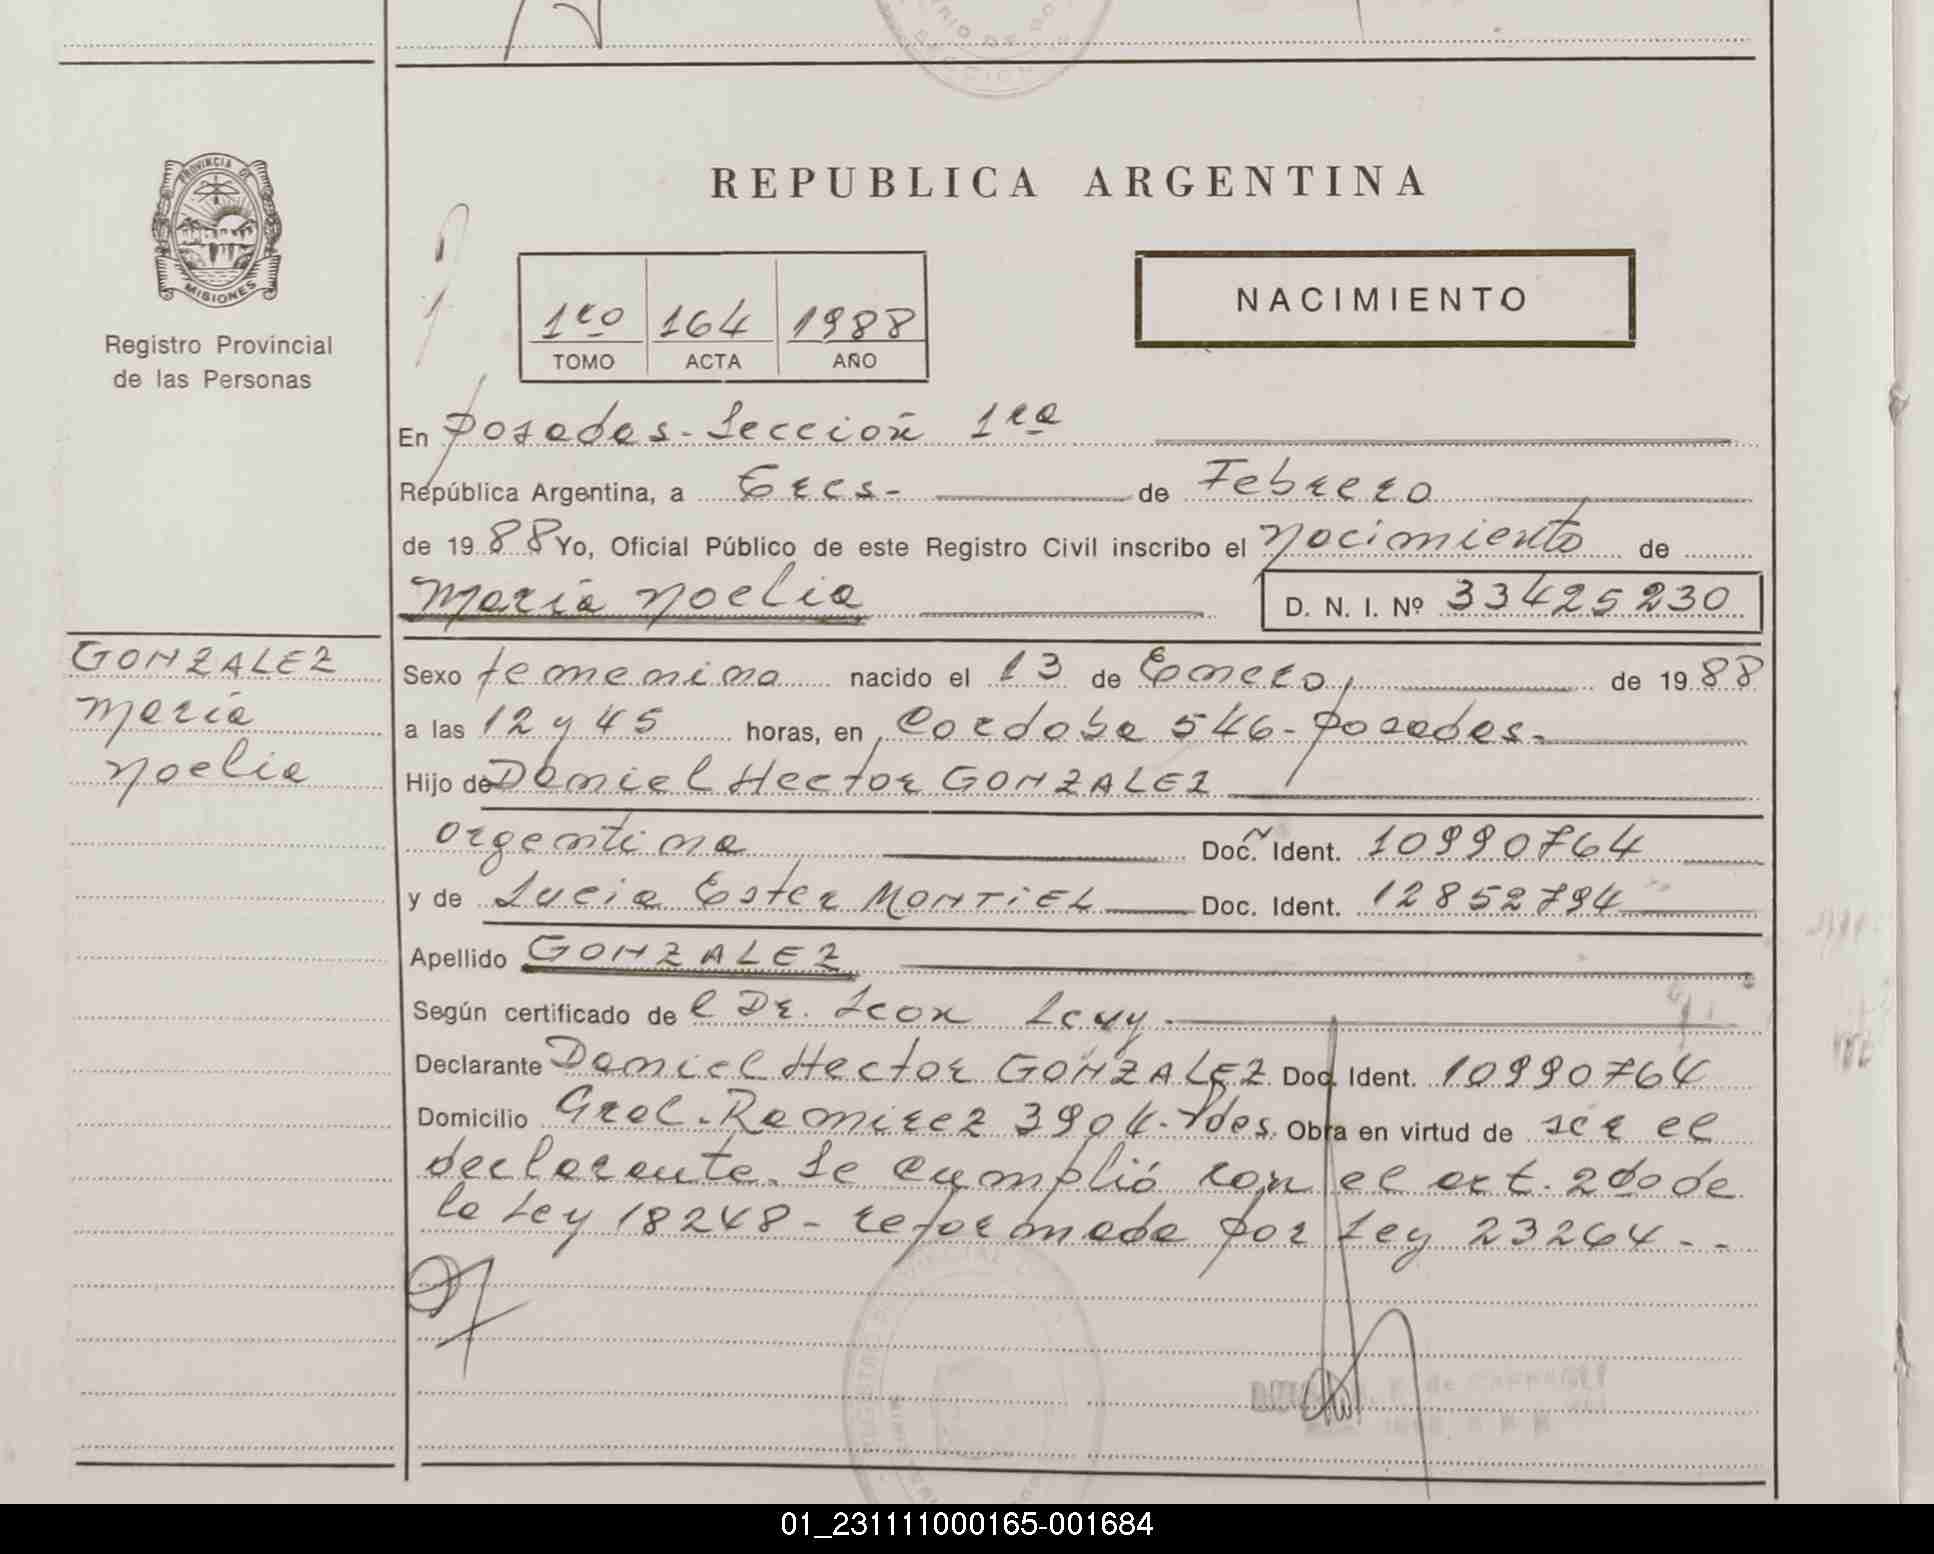 PROVINCIA DE
MISIONES
Registro Provincial
de las Personas
REPUBLICA ARGENTINA
1ro 164 1988
TOMO ACTA AÑO
NACIMIENTO
En Posadas - Sección 1ra
República Argentina, a Tres - de Febrero
de 1988 Yo, Oficial Público de este Registro Civil inscribo el nacimiento de
María Noelia D. N. I. Nº 33425230
GONZALEZ
María
Noelia
Sexo femenino nacido el 13 de Enero, de 1988
a las 12 y 45 horas, en Cordoba 546 - Posadas -
Hijo de Daniel Hector GONZALEZ
argentina Doc. Ident. 10990764
y de Lucia Ester MONTIEL Doc. Ident. 12852794
Apellido GONZALEZ
Según certificado de l Dr. Leon Levy -
Declarante Daniel Hector GONZALEZ Doc. Ident. 10990764
Domicilio Gral. Ramirez 3904 - Pdas. Obra en virtud de ser el
declarante. Se cumplió con el art. 2do de
la Ley 18248 - reformada por Ley 23264 - -
01_231111000165-001684